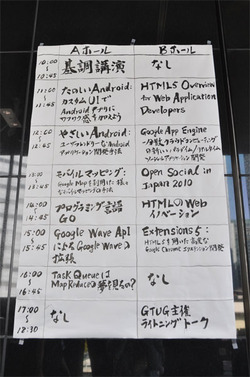 Aホール Bホール
10:00
~
10:45
基調講演
なし
11:00
~
11:45
たのしいAndroid:
カスタムUIで
Androidアプリに
ワクワク感を加えよう
HTML5 Overview
for Web Application
Developers
12:00
~
やさしいAndroid:
ユーザフレンドリーなAndroid
アプリケーション開発手法
Google App Engine
モバイルマッピング:
Open Social in
Japan 2010
14:00
~
14:45
プログラミング言語
GO
HTML5のWeb
イノベーション
15:00
~
15:45
Google Wave API
によるGoogle Waveの
拡張
Extensionsを:
16:00
~
16:45
Task Queueは
MapReduceの夢を見るか?
なし
17:00
~
18:30
なし
GTUG主催
ライトニングトーク